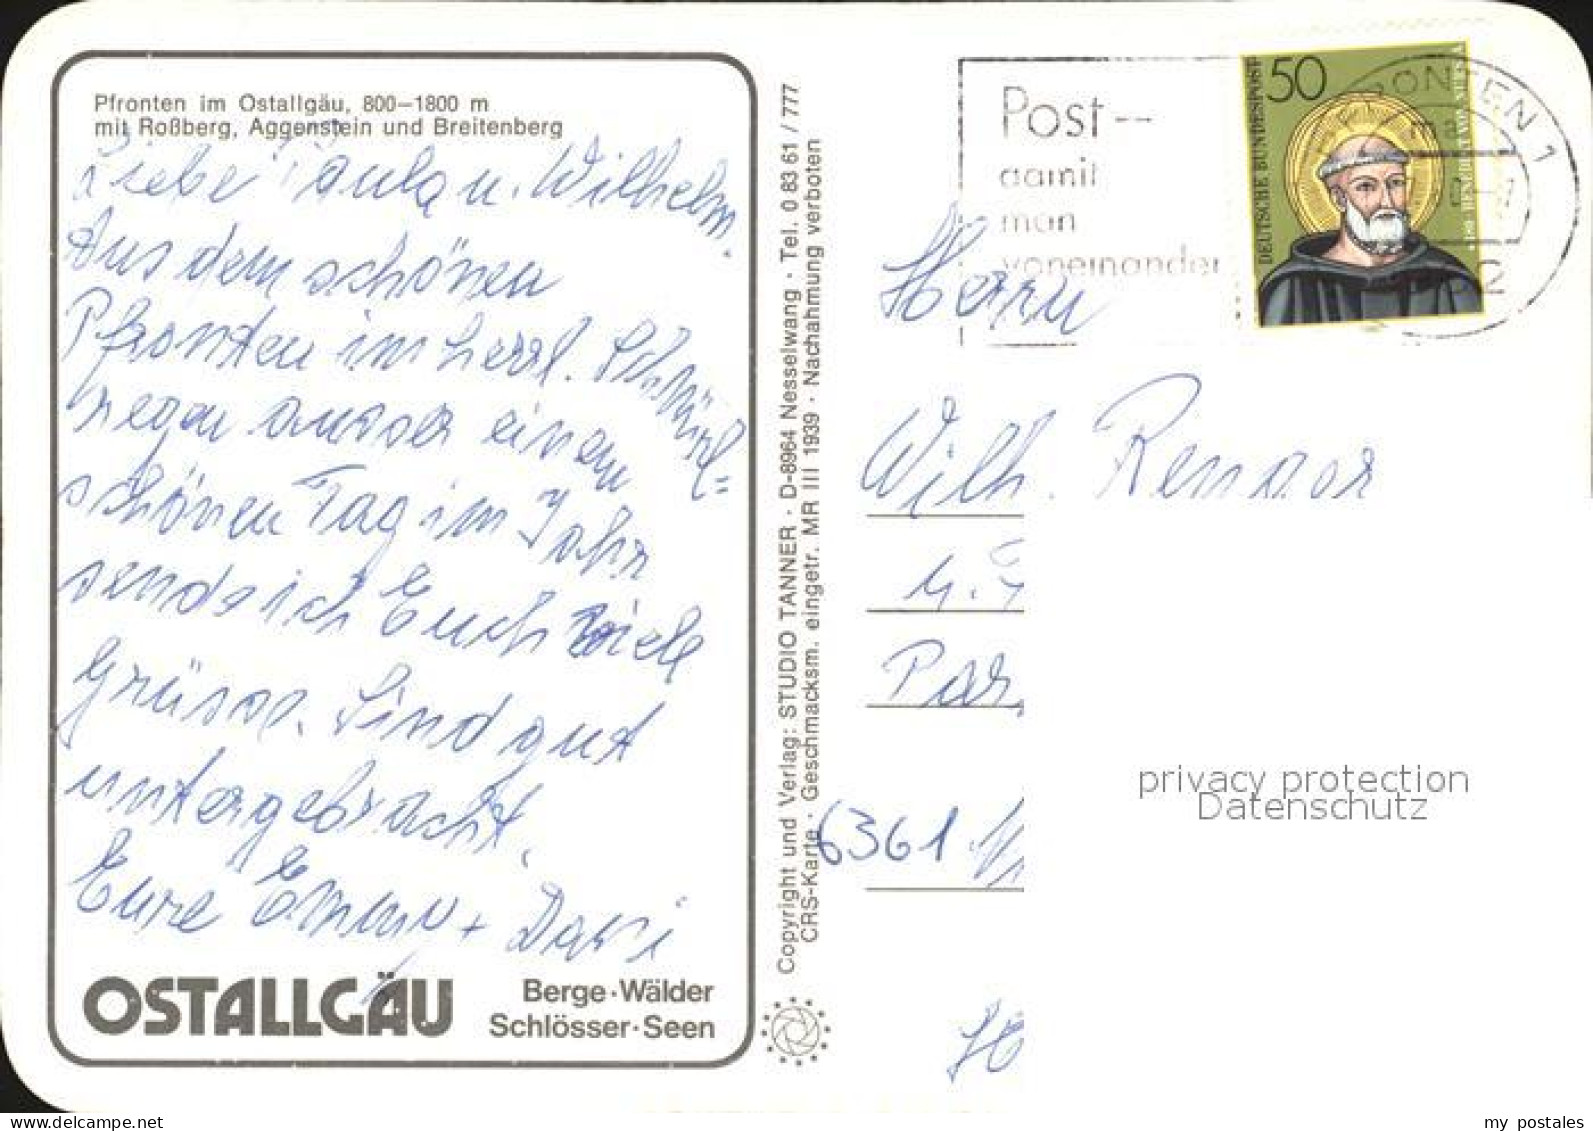 Pfronten im Ostallgäu, 800–1800 m
mit Roßberg, Aggenstein und Breitenberg
Liebe Paula u. Wilhelm.
Aus dem schönen
Pfronten im herrl. Schnürl=
regen ausser einem
schönen Tag im Jahr
sende ich Euch viele
Grüsse. Sind gut
untergebracht.
Eure Emmy + Dari
OSTALLGÄU
Berge·Wälder
Schlösser·Seen
Copyright und Verlag: STUDIO TANNER · D-8964 Nesselwang · Tel. 0 83 61 / 777
CRS-Karte · Geschmacksm. eingetr. MR III 1939 · Nachahmung verboten
Post--
damit
man
voneinander
PFRONTEN 1
50
DEUTSCHE BUNDESPOST
BENEDIKT VON NURSIA
Herrn
Wilh.
6361
privacy protection
Datenschutz
my postales